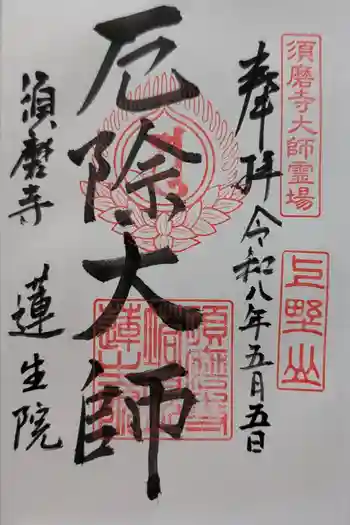 須磨寺大師霊場
上野山
奉拝 令和八年五月五日
厄除大師
須磨寺 蓮生院